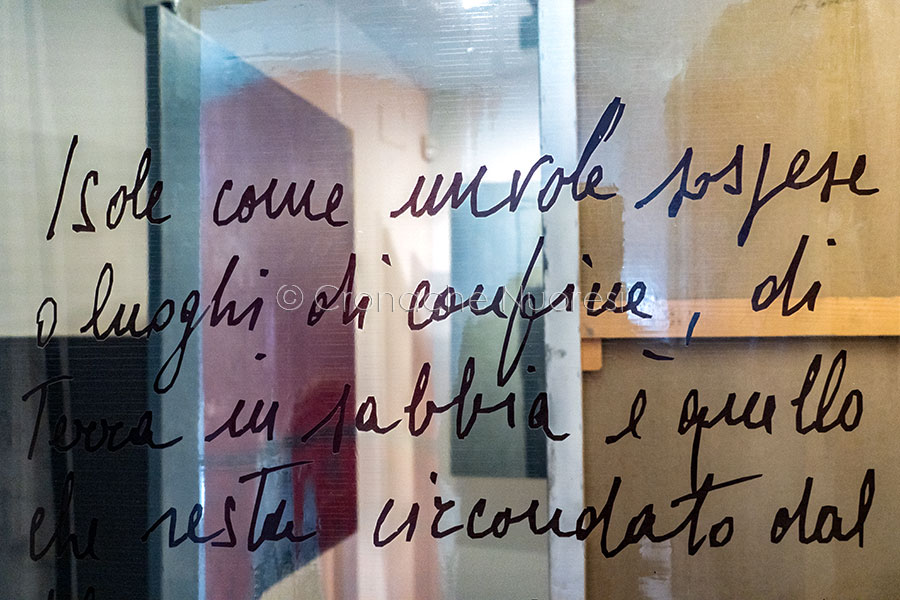 Isole come nuvole sospese
o luoghi di confine, di
Terra in sabbia è quello
che resta circondato dal
© Cronache Nuoresi